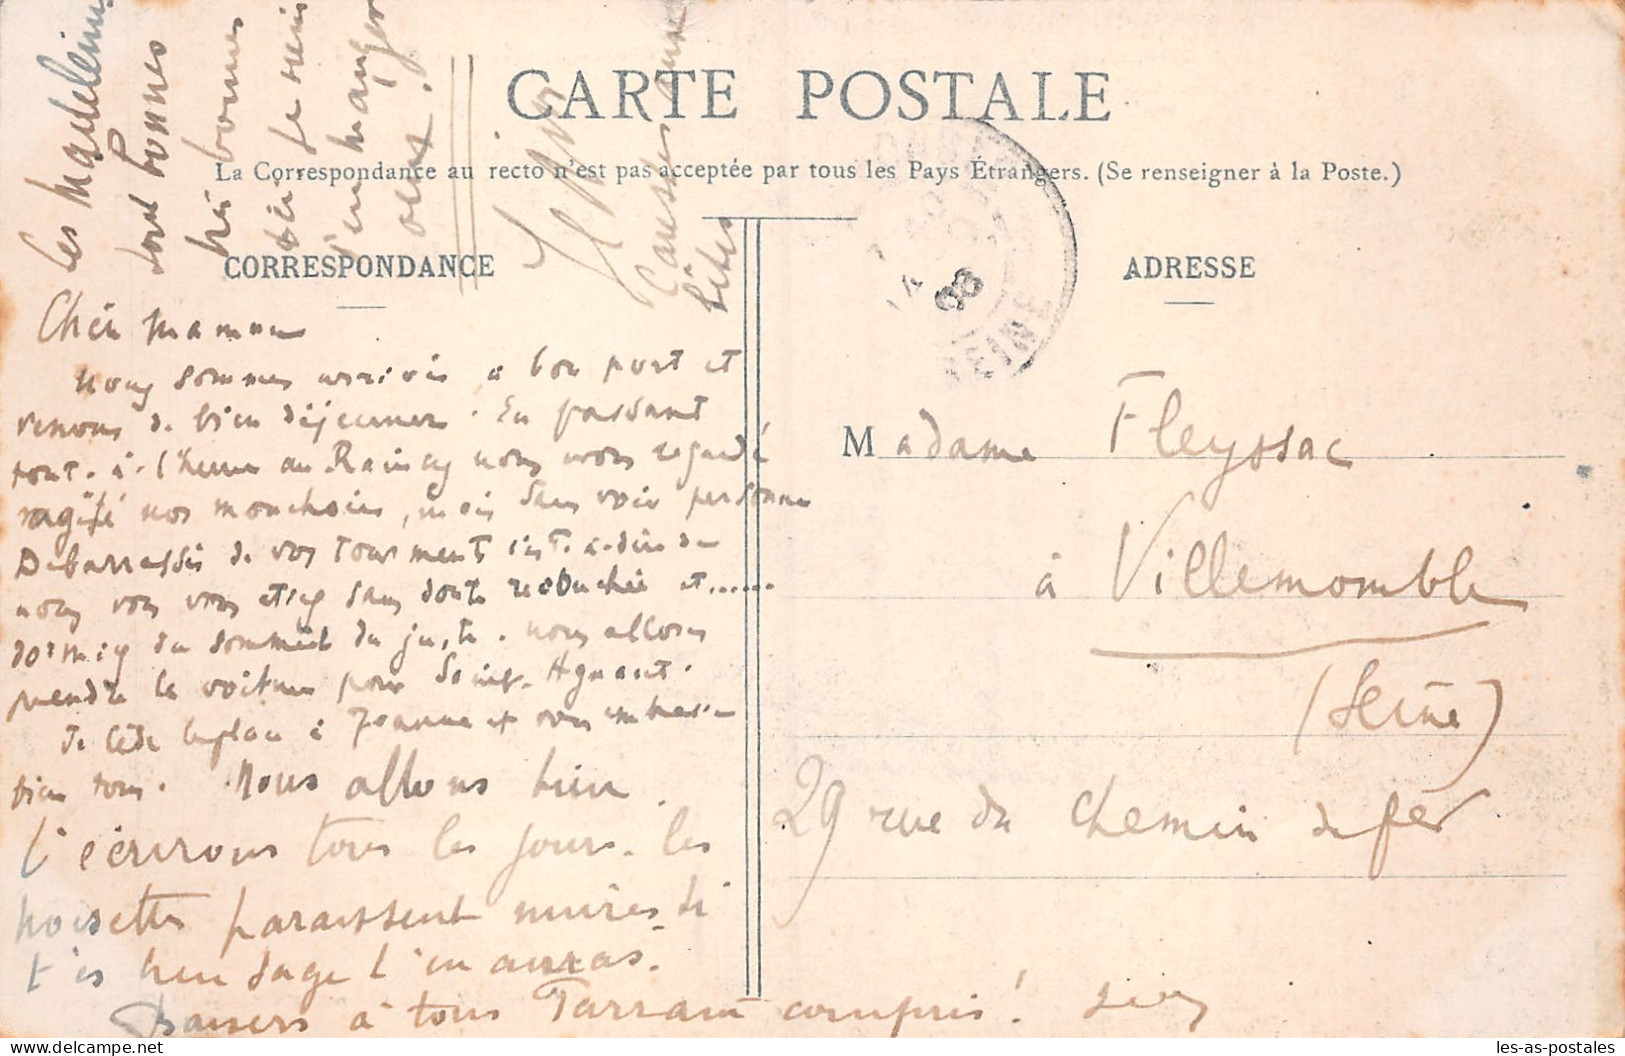 CARTE POSTALE
La Correspondance au recto n'est pas acceptée par tous les Pays Étrangers. (Se renseigner à la Poste.)
CORRESPONDANCE
ADRESSE
Les Madeleines
sont bonnes
très bonnes
je viens
d'en manger
Causses aux
Chère Maman
nous sommes arrivés à bon port et
venons de bien déjeuner. En passant
tout-à-l'heure au Raincy nous avons regardé
agité nos mouchoirs, mais sans voir personne
Debarrassés de vos tourments c'est-à-dire de
nous vous vous etiez sans doute recouchée et......
dormiez du sommeil du juste. nous allons
prendre la voiture pour Saint-Agnant.
Je cède la place à Jeanne et vous embrasse
bien tous. Nous allons bien.
T'écrirons tous les jours. les
noisettes paraissent mûres. si
t'es bien sage t'en auras.
Baisers à tous Tarrain compris!
SEINE
08
Madame Fleyssac
à Villemomble
(Seine)
29 rue du Chemin de fer
les-as-postales
www.les-as-postales.com